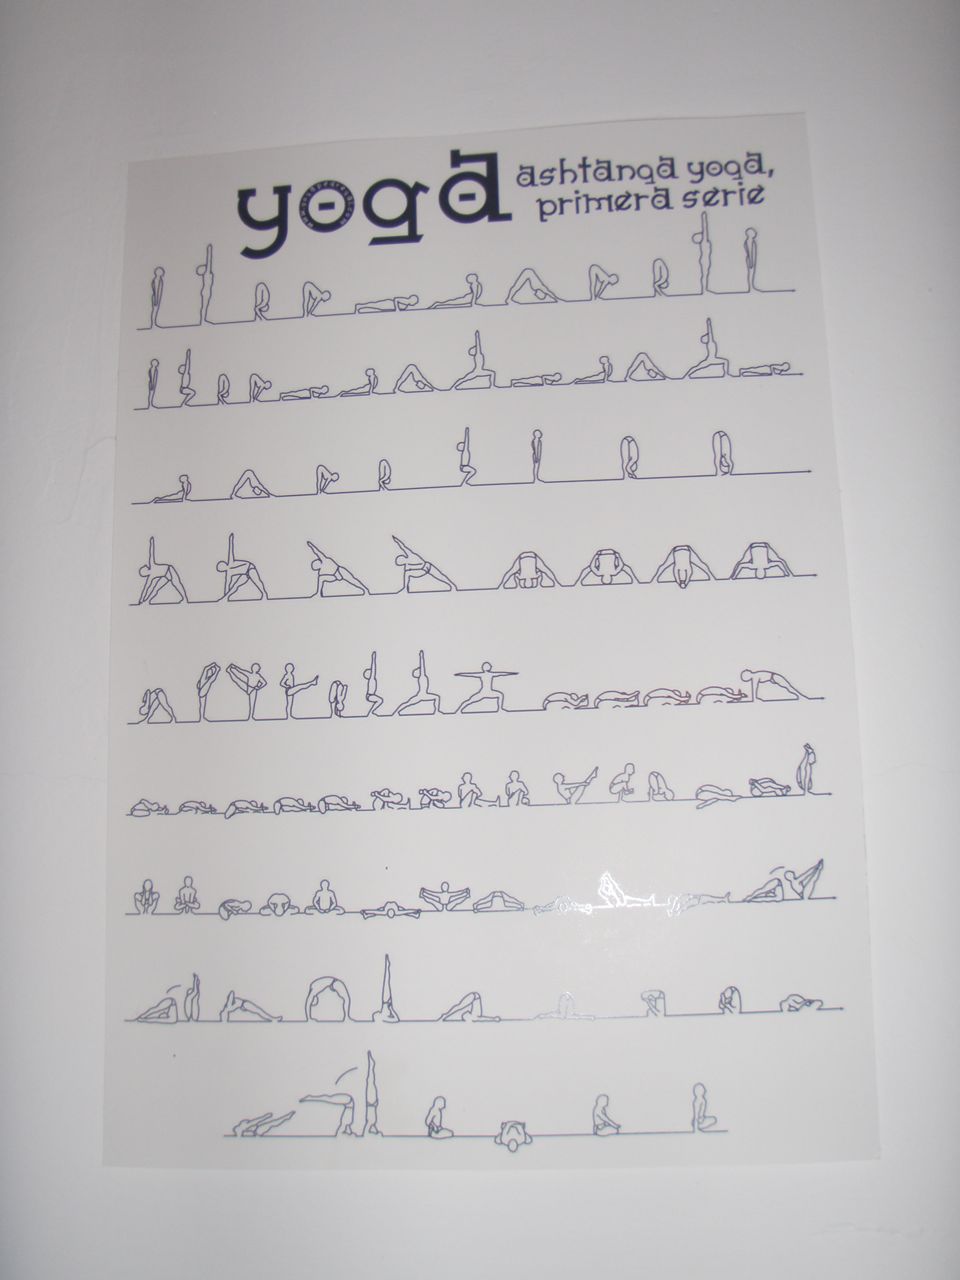 yoga
ashtanga yoga,
primera serie